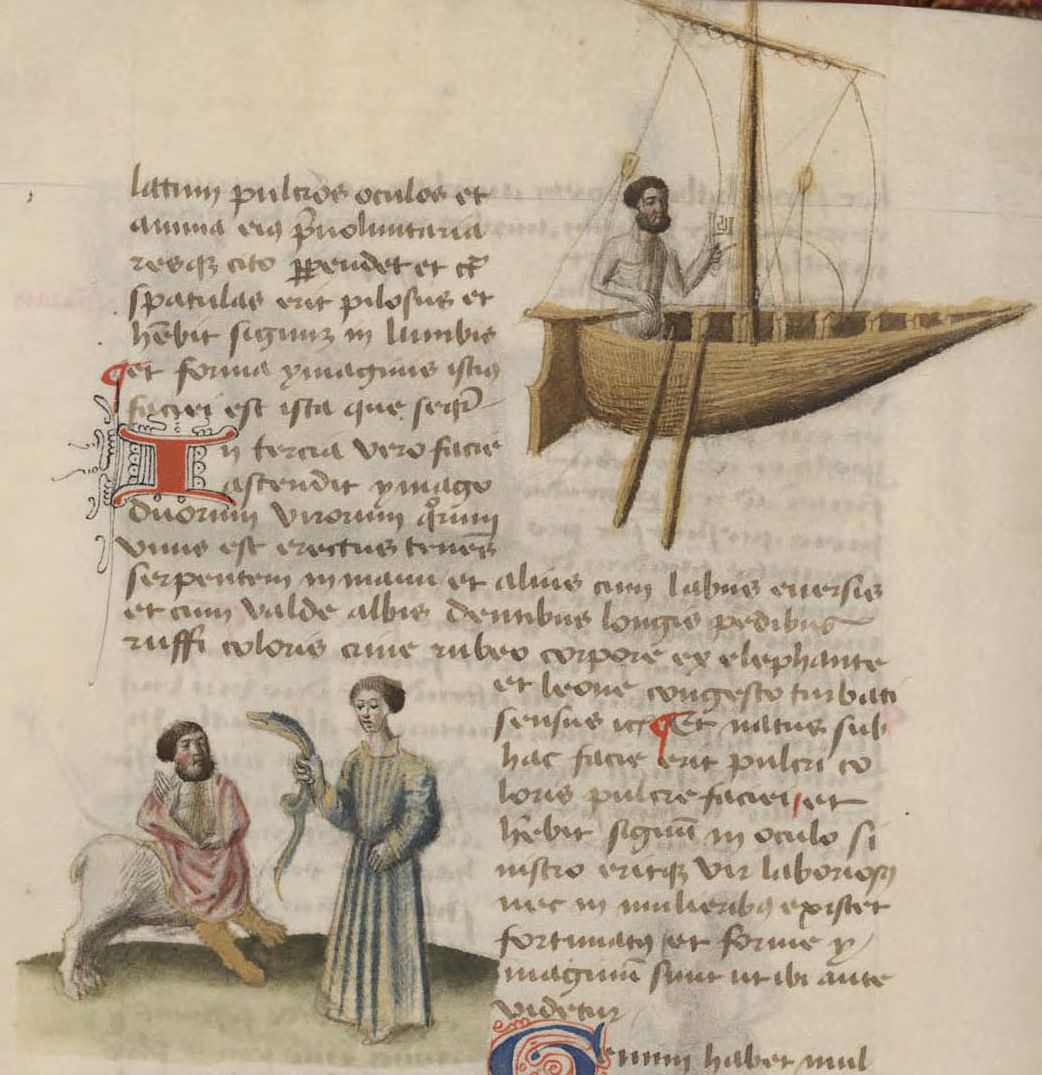 latum pulcros oculos et
anima eiꝰ p̄uoluntaria
resqꝫ cito ꝑpendet et cͣ
spatulas erit pilosus et
hēbit signuꝫ in lumbis
¶et forma ymaginis istiꝰ
faciei est ista que seqͥr
In tercia vero facie
ascendit ymago
duorum virorum qͦrum
vnus est erectus teneſ̄
serpentem in manu et alius cum labiis euersis
et cum valde albis dentibus longis pedibus
ruffi coloris crine rubeo corpore ex elephante
et leone congesto turbati
sensus ¶Et natus sub
hac facie erit pulcri co
loris pulcre faciei et
hēbit signū in oculo si
nistro eritqꝫ vir laboriosꝰ
nec in mulieribꝰ existet
fortunatꝰ et forme y
maginū sunt ut ibi ante
videtur
habet mul